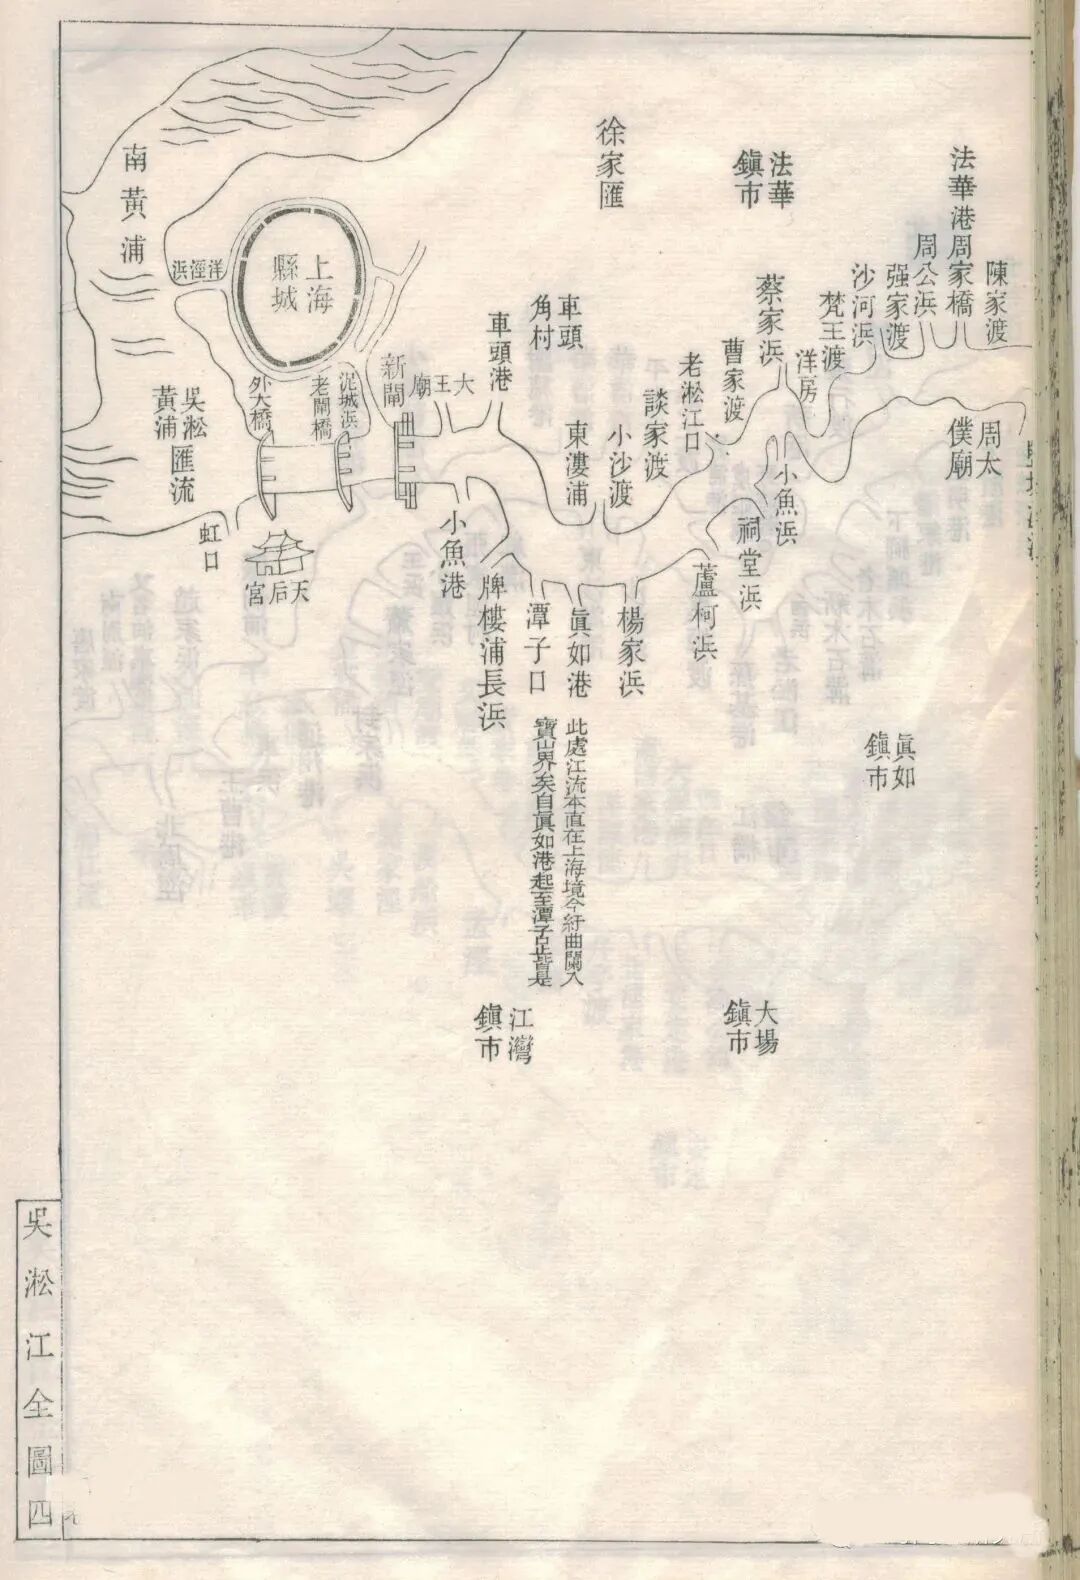 陳家渡
法華港周家橋
周公浜
强家渡
沙河浜
梵王渡
洋房
蔡家浜
法華
鎮市
曹家渡
老淞江口
談家渡
小沙渡
徐家匯
東漊浦
車頭
角村
車頭港
大王廟
新閘
泥城浜
老閘橋
外大橋
上海
縣城
洋涇浜
南黃浦
吳淞
黃浦匯流
周太
僕廟
小魚浜
祠堂浜
蘆柯浜
楊家浜
眞如港
潭子口
牌樓浦長浜
小魚港
天后宮
虹口
眞如
鎮市
此處江流本直在上海境今紆曲闌入
寶山界矣自眞如港起至潭子口止皆是
大場
鎮市
江灣
鎮市
吳淞江全圖四